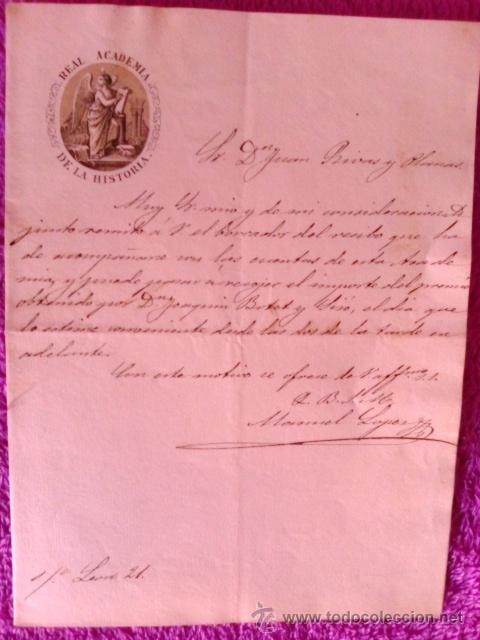 REAL ACADEMIA
DE LA HISTORIA.
Sr. Dn. Juan Rivas y
Muy Sr. mio y de mi consideracion: Ad
junto remito á V. el borrador del recibo que ha
de acompañarse con las cuentas de esta Acade
mia, y puede pasar á recojer el importe del premio
obtenido por Dn. Joaquin Botet y Sisó, el dia que
lo estime conveniente desde las dos de la tarde en
adelante.
Con este motivo se ofrece de V. affmo. S. S.
Q. B. S. M.
Manuel Lopez
s/c Leon 21.
© www.todocoleccion.net